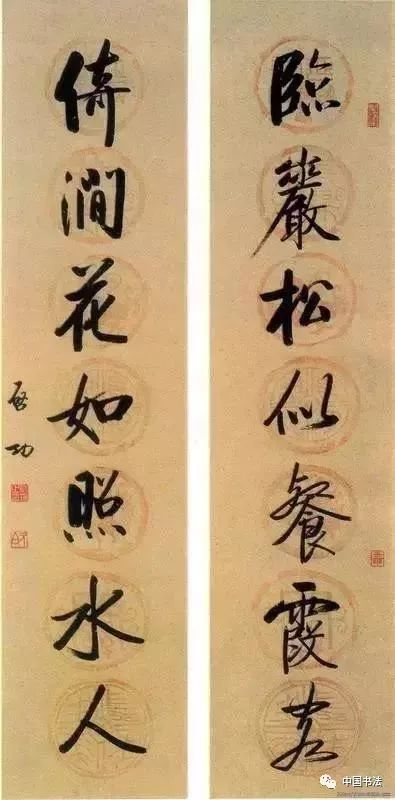 臨巖松似餐霞客
倚澗花如照水人
启功
中国书法